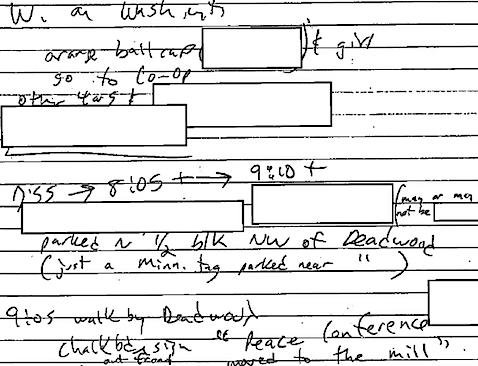 W. on Wash. with
orange ball cap & girl
go to Co-op
other cars &
Diss → 8:05 + → 9:10 +
(may or may
not be
parked N ½ blk NW of Deadwood
(just a Minn. tag parked near " )
9:05 walk by Deadwood
chalkbd sign "Peace Conference
out front moved to the mill".